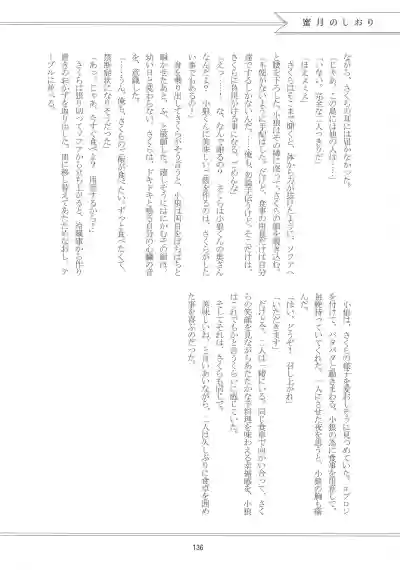 蜜月のしおり
ながら、さくらの耳には届かなかった。
「じゃあ、この島には他の人は……」
「いない。完全な二人っきりだ」
「ほえええぇ」
さくらはそこまで聞くと、体から力が抜けたように、ソファへ
と腰を下ろした。小狼はその隣に座って、さくらの顔を覗き込む。
「不便がないように手配はした。だけど、食事の用意だけは自分
達でするしかないんだ。……俺も、勿論手伝うけど。そこだけは、
さくらに負担かける事になる。ごめんな」
「えっ……な、なんで謝るの？さくらは小狼くんの奥さん
なんだよ？小狼くんに美味しいご飯を作るのは、さくらがした
い事でもあるの！」
身を乗り出してきっぱりそう言うと、小狼は両目をぱちぱちと
瞬かせたあと、ふ、と破顔した。嬉しそうにはにかむその顔は、
幼い日と変わらない。さくらは、ドキドキと鳴る自分の心臓の音
を、意識した。
「……うん。俺も、さくらのご飯が食べたい。ずっと食べたくて、
禁断症状になりそうだった」
「あっ。じゃあ、今すぐ食べよ？用意するからっ！」
さくらは張り切ってソファから立ち上がると、冷蔵庫から作り
置きのおかずを取り出した。皿に移し替えてあたためなおし、テ
ーブルに並べる。
小狼は、さくらの様子を愛おしそうに見つめていた。エプロン
を付けて、パタパタと動きまわる。小狼の為に食事を用意して、
毎晩待っていてくれた。一人にさせた夜を思うと、小狼の胸も痛
んだ。
「はい、どうぞ！召し上がれ」
「いただきます」
だけど今、二人は一緒にいる。同じ食卓で向かい合って、さく
らの笑顔を見ながらあたたかな手料理を味わえる幸福感を、小狼
はこれでもかと言うくらいに感じていた。
そしてそれは、さくらも同じで。
美味しいね、と言いあいながら、二人は久しぶりに食卓を囲め
た事を喜ぶのだった。
136